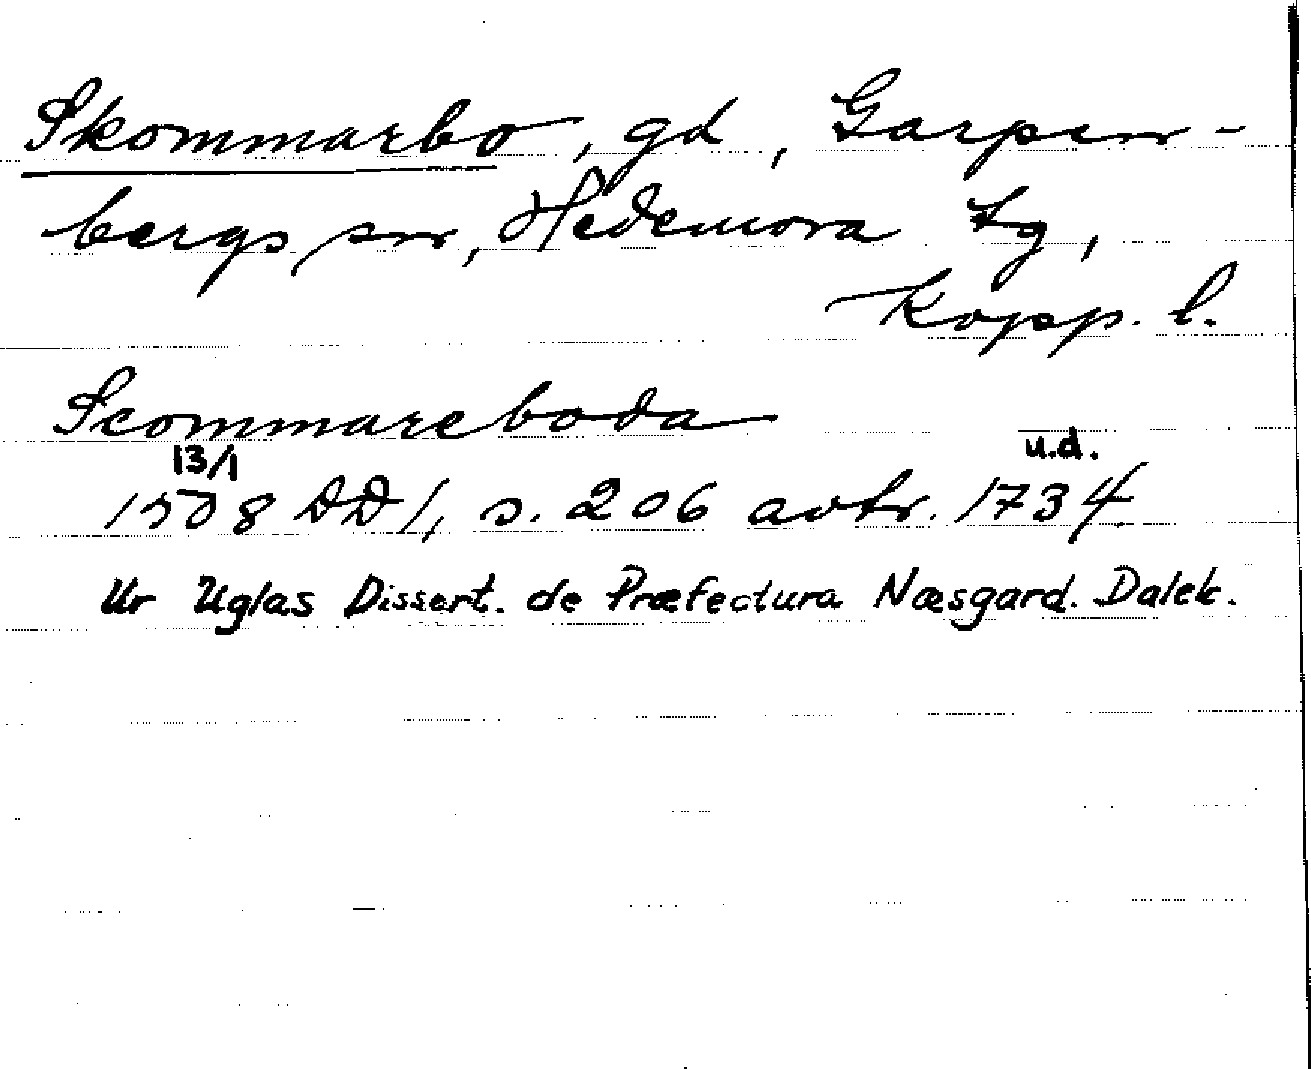 Skommarbo, gd, Garpen-
bergs sn, Hedemora tg,
Kopp. l.
Scommareboda
13/1 u.d.
1508 DD1, s. 206 avtr. 1734
Ur Uglas Dissert. de Præfectura Næsgard. Dalek.